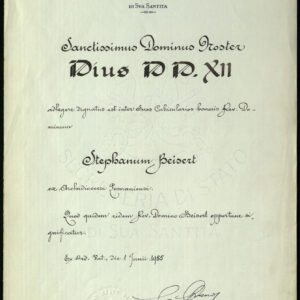 DI SUA SANTITÀ
Sanctissimus Dominus Noster
Pius PP. XII
adlegere dignatus est inter suos Cubicularios honoris Rev. Do-
minum
Stephanum Beisert
ex Archidioecesi
Quod quidem eidem Rev. Domino Beisert opportune si-
gnificatur.
Ex Aed. Vat., die 1 Junii 1955